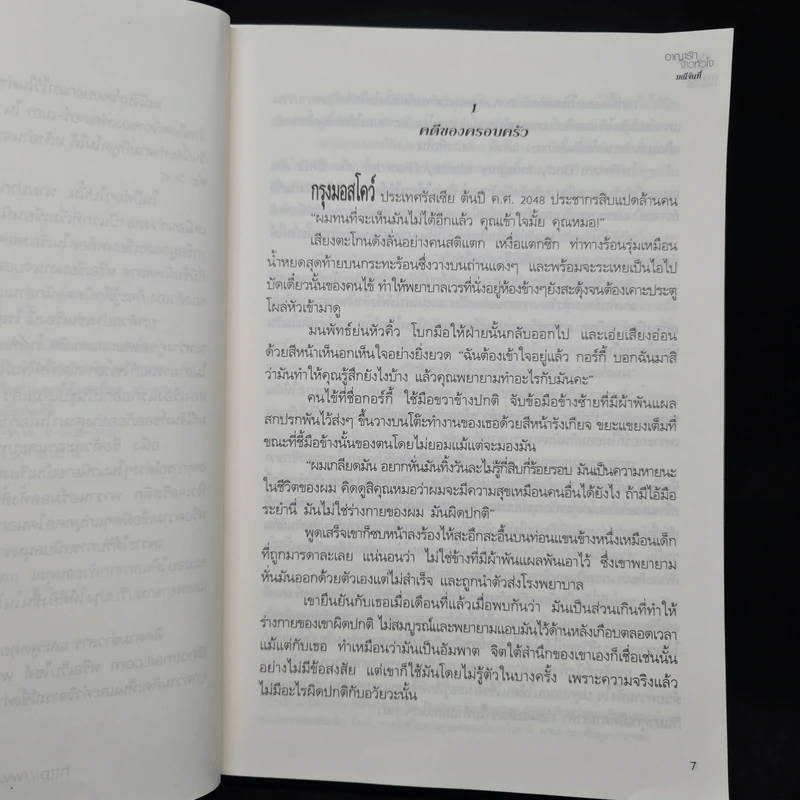 อาญารัก
จ้าวหัวใจ
มณีจันท์
1
คดีของครอบครัว
กรุงมอสโคว์ ประเทศรัสเซีย ต้นปี ค.ศ. 2048 ประชากรสิบแปดล้านคน
“ผมทนที่จะเห็นมันไม่ได้อีกแล้ว คุณเข้าใจมั้ย คุณหมอ!”
เสียงตะโกนดังลั่นอย่างคนสติแตก เหงื่อแตกซิก ท่าทางร้อนรุ่มเหมือน
น้ำหยดสุดท้ายบนกระทะร้อนซึ่งวางบนถ่านแดงๆ และพร้อมจะระเหยเป็นไอไป
บัดเดี๋ยวนั้นของคนไข้ ทำให้พยาบาลเวรที่นั่งอยู่ห้องข้างๆยังสะดุ้งจนต้องเคาะประตู
โผล่หัวเข้ามาดู
มนพัทธ์ย่นหัวคิ้ว โบกมือให้ฝ่ายนั้นกลับออกไป และเอ่ยเสียงอ่อน
ด้วยสีหน้าเห็นอกเห็นใจอย่างยิ่งยวด “ฉันต้องเข้าใจอยู่แล้ว กอร์กี้ บอกฉันมาสิ
ว่ามันทำให้คุณรู้สึกยังไงบ้าง แล้วคุณพยายามทำอะไรกับมันคะ”
คนไข้ที่ชื่อกอร์กี้ ใช้มือขวาข้างปกติ จับข้อมือข้างซ้ายที่มีผ้าพันแผล
สกปรกพันไว้ส่งๆ ขึ้นวางบนโต๊ะทำงานของเธอด้วยสีหน้ารังเกียจ ขยะแขยงเต็มที่
ขณะที่ชี้มือข้างนั้นของตนโดยไม่ยอมแม้แต่จะมองมัน
“ผมเกลียดมัน อยากหั่นมันทิ้งวันละไม่รู้กี่สิบกี่ร้อยรอบ มันเป็นความหายนะ
ในชีวิตของผม คิดดูสิคุณหมอว่าผมจะมีความสุขเหมือนคนอื่นได้ยังไง ถ้ามีไอ้มือ
ระยำนี่ มันไม่ใช่ร่างกายของผม มันผิดปกติ”
พูดเสร็จเขาก็ซบหน้าลงร้องไห้สะอึกสะอื้นบนท่อนแขนข้างหนึ่งเหมือนเด็ก
ที่ถูกมารดาละเลย แน่นอนว่า ไม่ใช่ข้างที่มีผ้าพันแผลพันเอาไว้ ซึ่งเขาพยายาม
หั่นมันออกด้วยตัวเองแต่ไม่สำเร็จ และถูกนำตัวส่งโรงพยาบาล
เขายืนยันกับเธอเมื่อเดือนที่แล้วเมื่อพบกันว่า มันเป็นส่วนเกินที่ทำให้
ร่างกายของเขาผิดปกติ ไม่สมบูรณ์และพยายามแอบมันไว้ด้านหลังเกือบตลอดเวลา
แม้แต่กับเธอ ทำเหมือนว่ามันเป็นอัมพาต จิตใต้สำนึกของเขาเองก็เชื่อเช่นนั้น
อย่างไม่มีข้อสงสัย แต่เขาก็ใช้มันโดยไม่รู้ตัวในบางครั้ง เพราะความจริงแล้ว
ไม่มีอะไรผิดปกติกับอวัยวะนั้น
7